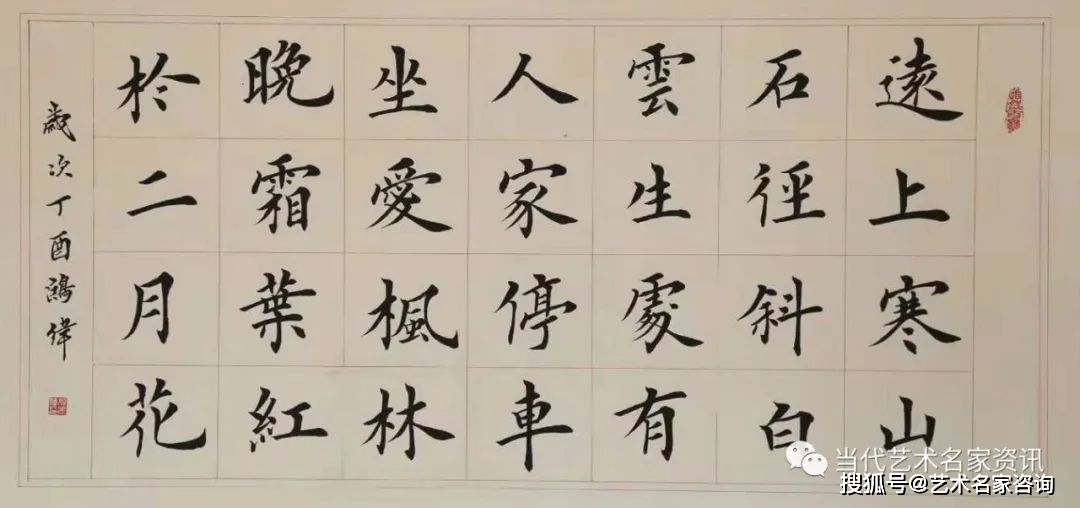 遠上寒山
石徑斜白
雲生處有
人家停車
坐愛楓林
晚霜葉紅
於二月花
歲次丁酉鴻偉
当代艺术名家资讯
搜狐号@艺术名家咨询